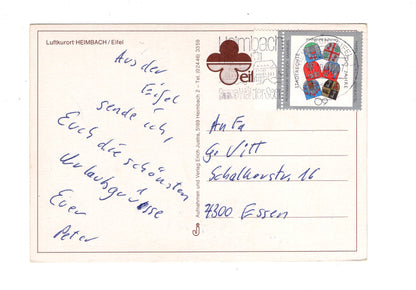 Luftkurort HEIMBACH / Eifel
Aus der
Eifel
sende ich
Euch die schönsten
Urlaubsgrüsse
Euer
Peter
Aufnahmen und Verlag Erich Justra, 5169 Heimbach 2 - Tel. (02446) 2039
Heimbach
eil
An Fa
Ge Vitt
Schalkerstr. 16
4300 Essen